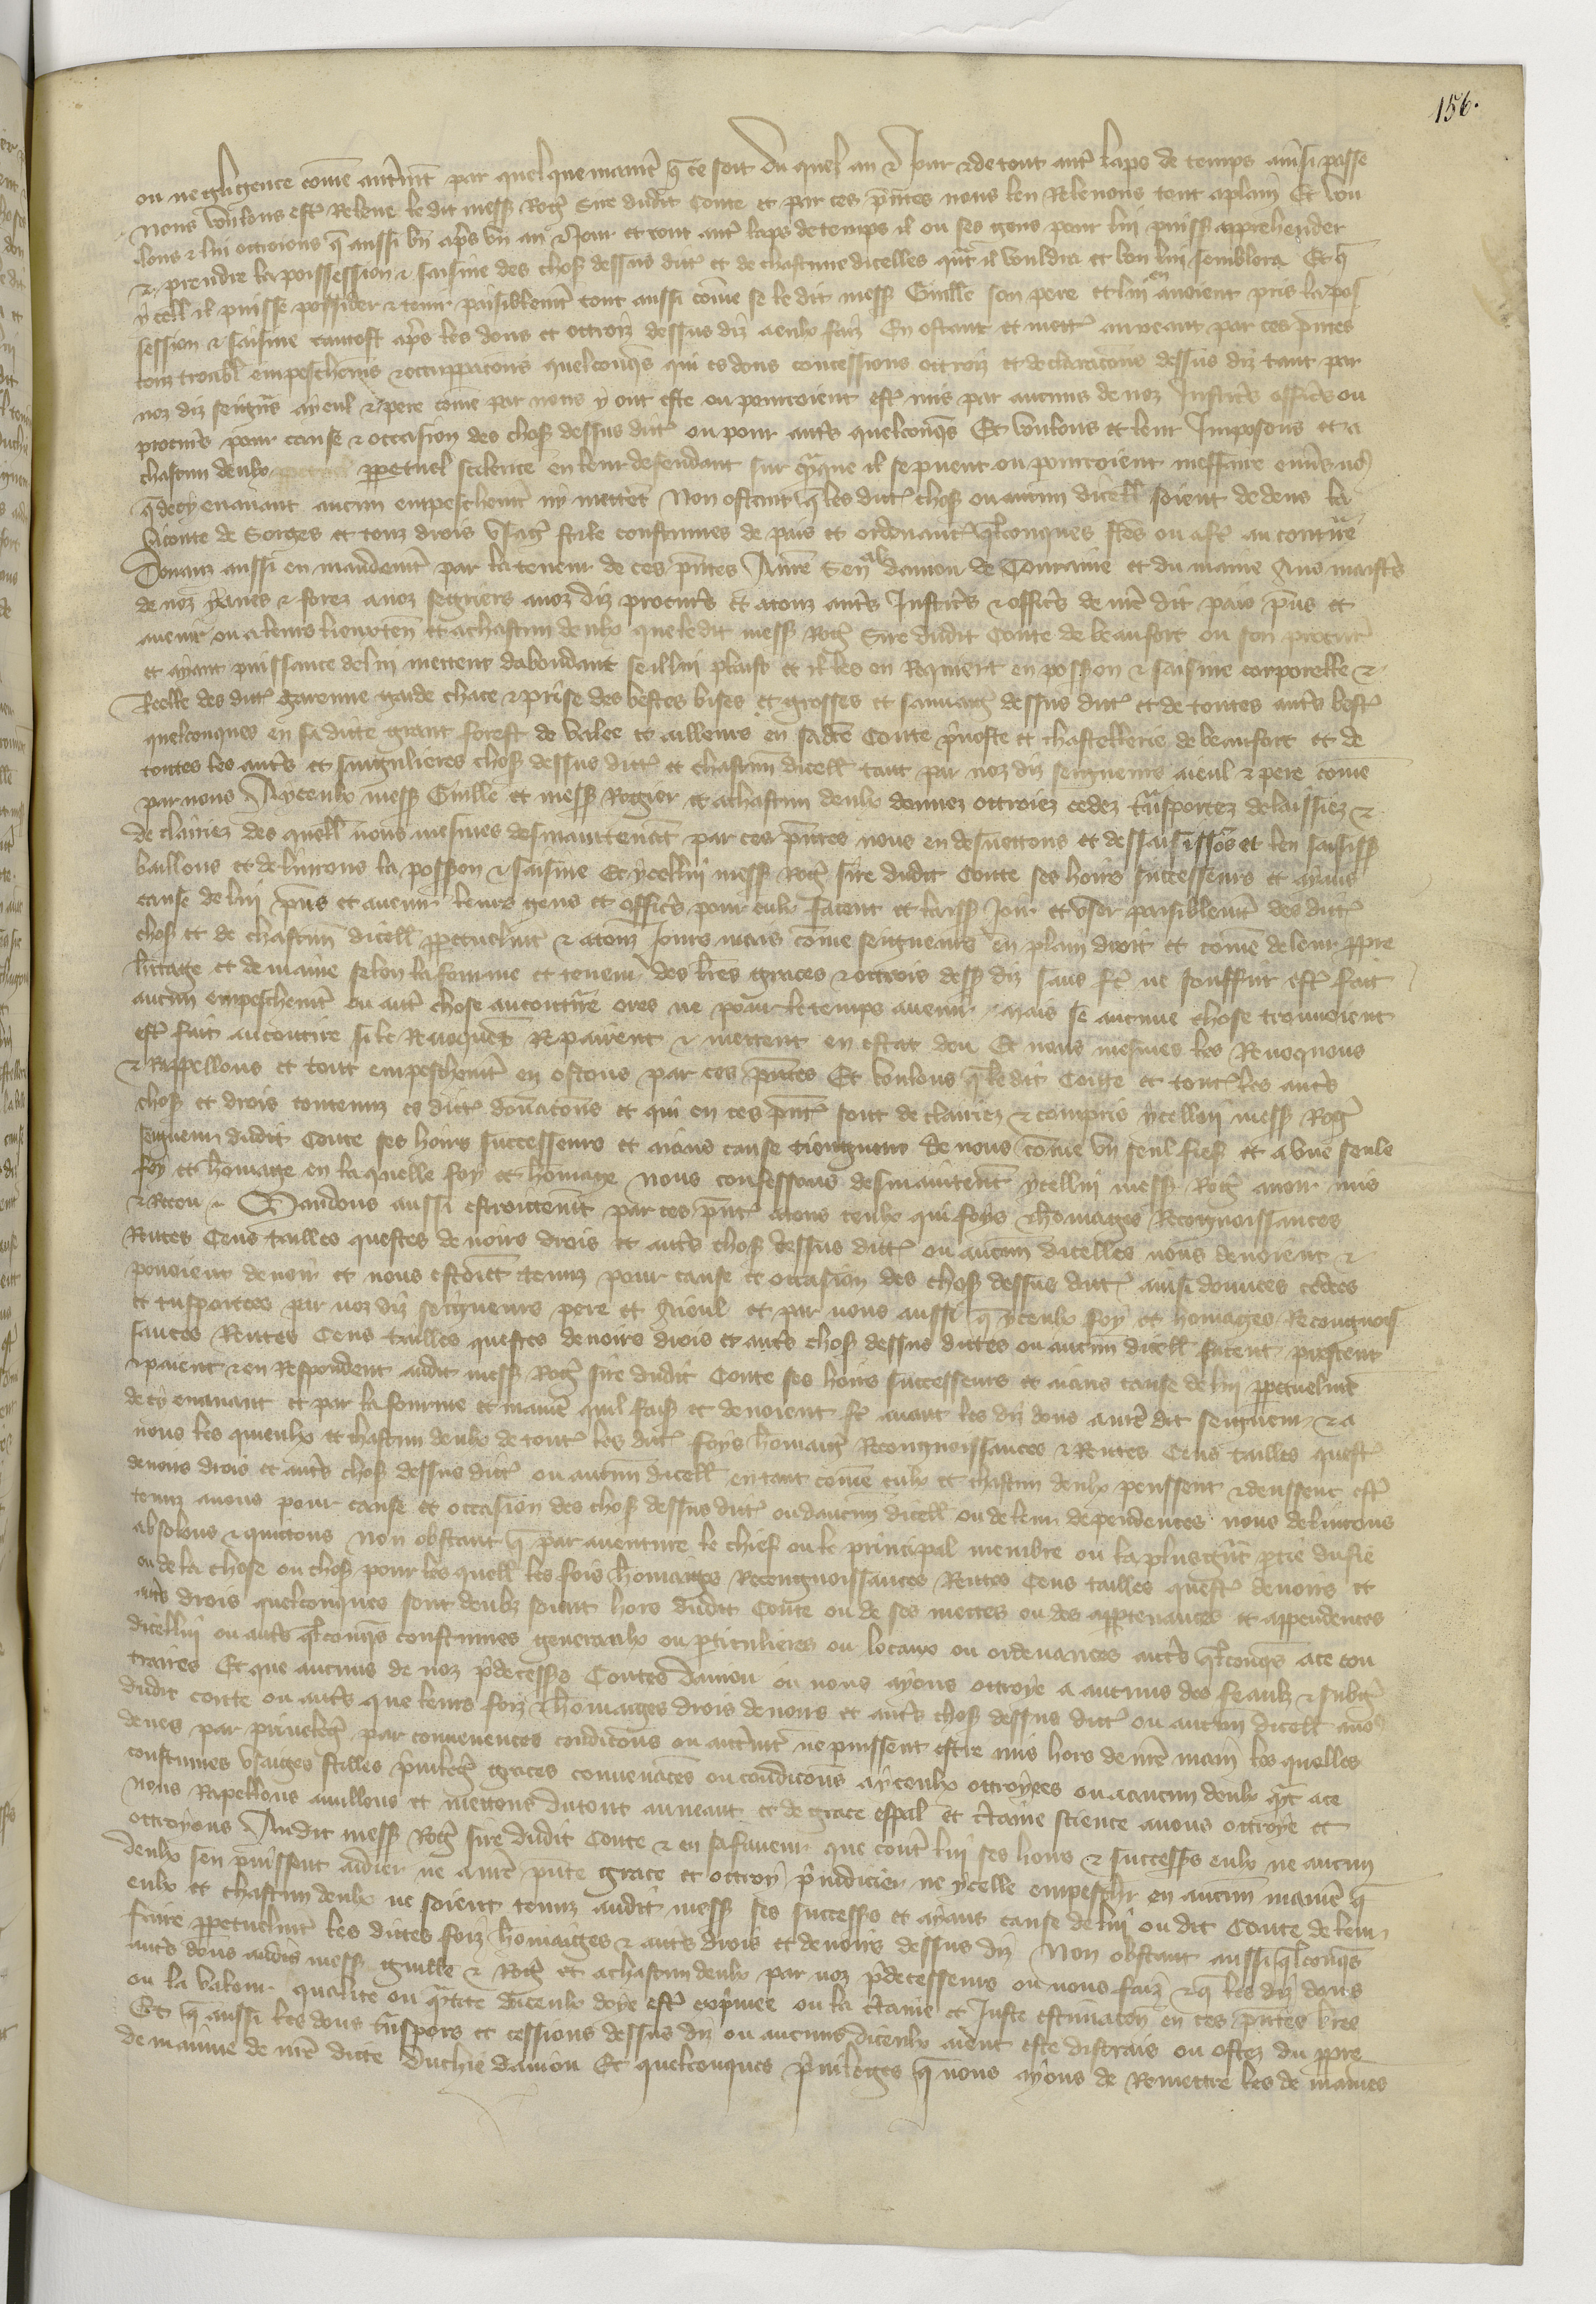 156.
ou negligence come autremt par quelque manie q ce soit du quel an & Jour & de tout autre laps de temps ainsi passe
nous voulons estre Releve le dit mess Rog Sire dudit Conte et par ces pntes nous len Relevons tout aplain Et vou
lons & lui octroions q aussi bn apres un an & Jour et tout autre laps de temps il ou ses gens pour lui puiss apprehender
& prendre la poissession & saisine des chos dessus dites et de chascune dicelles qnt il vouldra et bon lui semblera Et q
ycell il puisse possider & tenir paisiblemt tout aussi come se le dit mess Guille son pere et lui en avoient pris la pos
session & saisine tantost apres les dons et octrois dessus diz a eulx faiz En ostant et mettre au neant par ces pntes
touz troubl empeschemens & occuppacions quelconqs qui es dons concessions octroiz et declaracions dessus diz tant par
noz diz seigns ayeul & pere come par nous y ont este ou pourroient estre mis par aucuns de noz Justiciers officiers ou
procureurs pour cause & occasion des chos dessus dites ou pour autres quelconqs Et voulons et leur Imposons et a
chascun deulx ppetuel scilence en leur defendant sur quaque il se puent ou pourroient meffaire envers nos
q decy enavant aucun empeschemt ny mettent Non ostant q les dites chos ou aucun dicell soient dedens la
viconte de Sorges et touz drois usag stile coustumes de pais et ordenances qlconques fces ou affre au contraire
Donans aussi en mandemt par la teneur de ces pntes A nre Senal daniou de Touraine et du maine Aus maistres
de noz yaues & forez a noz segriers a noz diz procureurs et a touz autres Justiciers & officiers de nre dit pais pns et
avenir ou a leurs lieuxten et a chascun deulx que le dit mess Rog Sire dudit Conte de beaufort ou son procureur
et ayant puissance de lui mettent dabondant se il lui plaist et il les en Requiert en possion & saisine corporelle &
Reelle des dites garenne garde chace & prise des bestes bises et grosses et sauvag dessus dites et de toutes autres bestes
quelconques en sa dicte grant forest de valee et ailleurs en sadce Conte prvoste et chastellerie de beaufort et de
toutes les autres et singulieres chos dessus dites et chascun dicell tant par noz diz seigneurs aieul & pere come
par nous A yceulx mess Guille et mess Rogier et a chascun deulx donnez octroiez cedez transportez delaissiez &
declairiez des quell nous mesmes des maintenat par ces pntes nous en desvettons et dessaisissons et len saisiss
baillons et delivrons la possion & saisine Et ycellui mess Rog sire dudit Conte ses hoirs successeurs et ayans
cause de lui pns et avenir leurs gens et officiers pour eulx facent et laiss Jouir et user paisiblemt des dites
chos et de chascun dicell ppetuelmt & a touz Jours mais come seigneurs en plain droit et come de leur ppre
heritage et demaine selon la forme et teneur des lres graces & octrois dess diz sans fe ne souffrir estre fait
aucun empeschemt ou autre chose au contraire ores ne pour le temps avenir mais se aucune chose trouvoient
estre fait au contire si le Revoquent Repairent & mettent en estat deu Et nous mesmes les Revoquons
& Rappellons et tout empeschemt en ostons par ces pntes Et voulons q le dit Conte et toutes les autres
chos et drois contenuz es dites donacons et qui en ces pntes sont declairiez & compris ycellui mess Rog
seigneur dudit Conte ses hoirs successeurs et aians cause tiengnent de nous come un seul fief et a une seule
foy et homage en la quelle foy et homage nous confessons des maintent ycellui mess Rog avoir mis
& Receu & Mandons aussi estroittemt par ces pntes a tous ceulx qui foys & homages Recongnoissances
Rentes Cens tailles questes devoirs drois et autres chos dessus dites ou aucun dicelles nous devoient &
povoient devoir et nous estoient tenuz pour cause et occasion des chos dessus dites ainsi donnees cedees
et tnsportees par noz diz seigneurs pere et aieul et par nous aussi q yceulx foy et homages Recongnois
sances Rentes Cens tailles questes devoirs drois et autres chos dessus dictes ou aucun dicell facent prestent
& paient & en Respondent audit mess Rog sire dudit Conte ses hoirs successeurs et aians cause de lui ppetuelmt
decy enavant et par la fourme et manie quil fais et devoient fe avant les diz dons a nre dit seigneur & a
nous les quieulx et chascun deulx de toutes les dites foys homag Recongnoissances & Rentes Cens tailles questes
devoirs drois et autres chos dessus dites ou aucun dicell en tant come eulx et chascun deulx peussent & deussent estre
tenuz a nous pour cause et occasion des chos dessus dites ou daucun dicell ou de leur dependences nous delivrons
absolons & quictons non obstant q par aventure le chief ou le principal membre ou la plus gnt ptie du fie
ou de la chose ou chos pour les quell les fois homaiges Recongnoissances Rentes Cens tailles questes devoirs et
autres drois quelconques sont deubz soient hors dudit Conte ou de ses mettes ou des appartenances et appendences
dicellui ou autres qlconqs coustumes generaulx ou pticulieres ou locaux ou ordenances autres qlconqs a ce con
traires Et que aucuns de noz predecesss Contes daniou ou nous ayons octroye a aucuns des feaulx & subgez
dudit conte ou autres que leurs foiz & homaiges drois devoirs et autres chos dessus dites ou aucun dicell a nos
deues par privileg par convenences condicons ou autremt ne puissent estre mis hors de nre main les quelles
coustumes usaiges stilles privileg graces convenances ou condicons a yceulx octroyees ou a aucun deulx qnt a ce
nous Rapellons anullons et mettons du tout au neant et de grace espal et ctaine science avons octroye et
octroyons Au dit mess Rog sire dudit Conte & en sa faveur que contre lui ses hoirs & successs eulx ne aucun
deulx sen puissent aidier ne a nre pnte grace et octroy preiudicier ne ycelle empeschr en aucun manie q
eulx et chascun deulx ne soient tenuz audit mess ses successs et ayans cause de lui ou dit Conte de leur
faire ppetuelmt les dictes foiz homaiges & autres drois et devoirs dessus diz Non obstant aussi qlconqs
autres dons audis mess guille & Rog et a chascun deulx par noz predecesseurs ou nous faiz & q les diz dons
ou la valour qualite ou qtite diceulx doye estre exprimee ou la ctaine et Juste estimacon en ces pntes lres
Et q aussi les dons transpors et cessions dessus diz ou aucuns diceulx aient este distrais ou ostez du ppre
demaine de nre dicte Duchie daniou Et quelconques privileges q nous ayons de Remettre les demaines